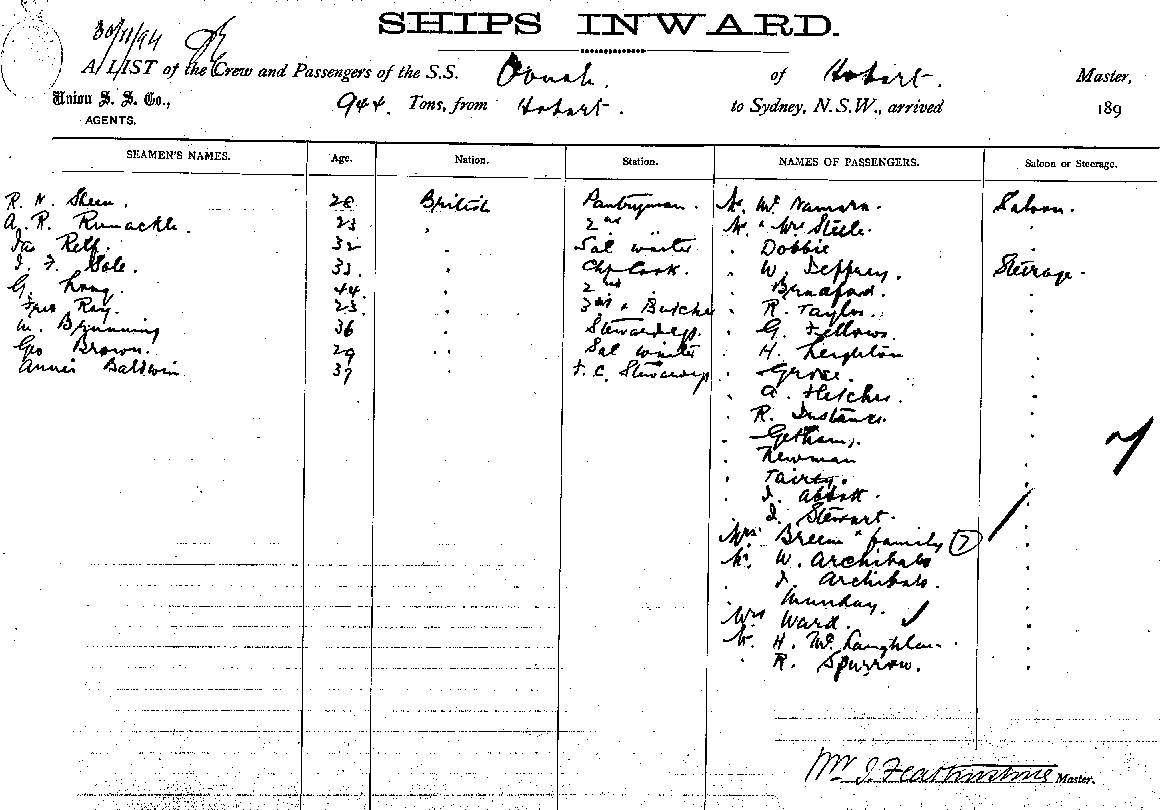 SHIPS INWARD.
30/11/94
A LIST of the Crew and Passengers of the S.S. Oonah. of Hobart. Master,
Union S. S. Co., 944. Tons, from Hobart. to Sydney, N.S.W., arrived 189
AGENTS.
SEAMEN'S NAMES. Age. Nation. Station. NAMES OF PASSENGERS. Saloon or Steerage.
R. N. Sheen. British Pantryman. Mr. McNamara. Saloon.
A. R. Runackle. 23 " 2nd Mr. & Mrs Steele. "
Relf. 32 " Sal waiter " Dobbie "
Sole. 33. " Chf Cook. " W. Jeffrey. Steerage.
G. Long. 44. " 2nd " Bradford. "
Fred Ray. 23. " 3rd & Butcher " R. Taylor. "
M. Brunning 36 " Stewardess. " G. Fellows. "
Geo Brown. 29 " Sal waiter " H. Leighton "
Annie Baldwin. 37 " F. C. Stewardess " Grove. "
" A. Fletcher. "
" R. Dustance. "
" "
" Newman "
" "
" J. Abbott. "
" J. Stewart. "
Mrs Breen & family (7) "
Mr. W. Archibald "
" J. Archibald. "
" Munday. "
Mrs Ward. "
Mr. H. McLaughlan. "
" R. Spurrow. "
Wm J. Featherstone Master.